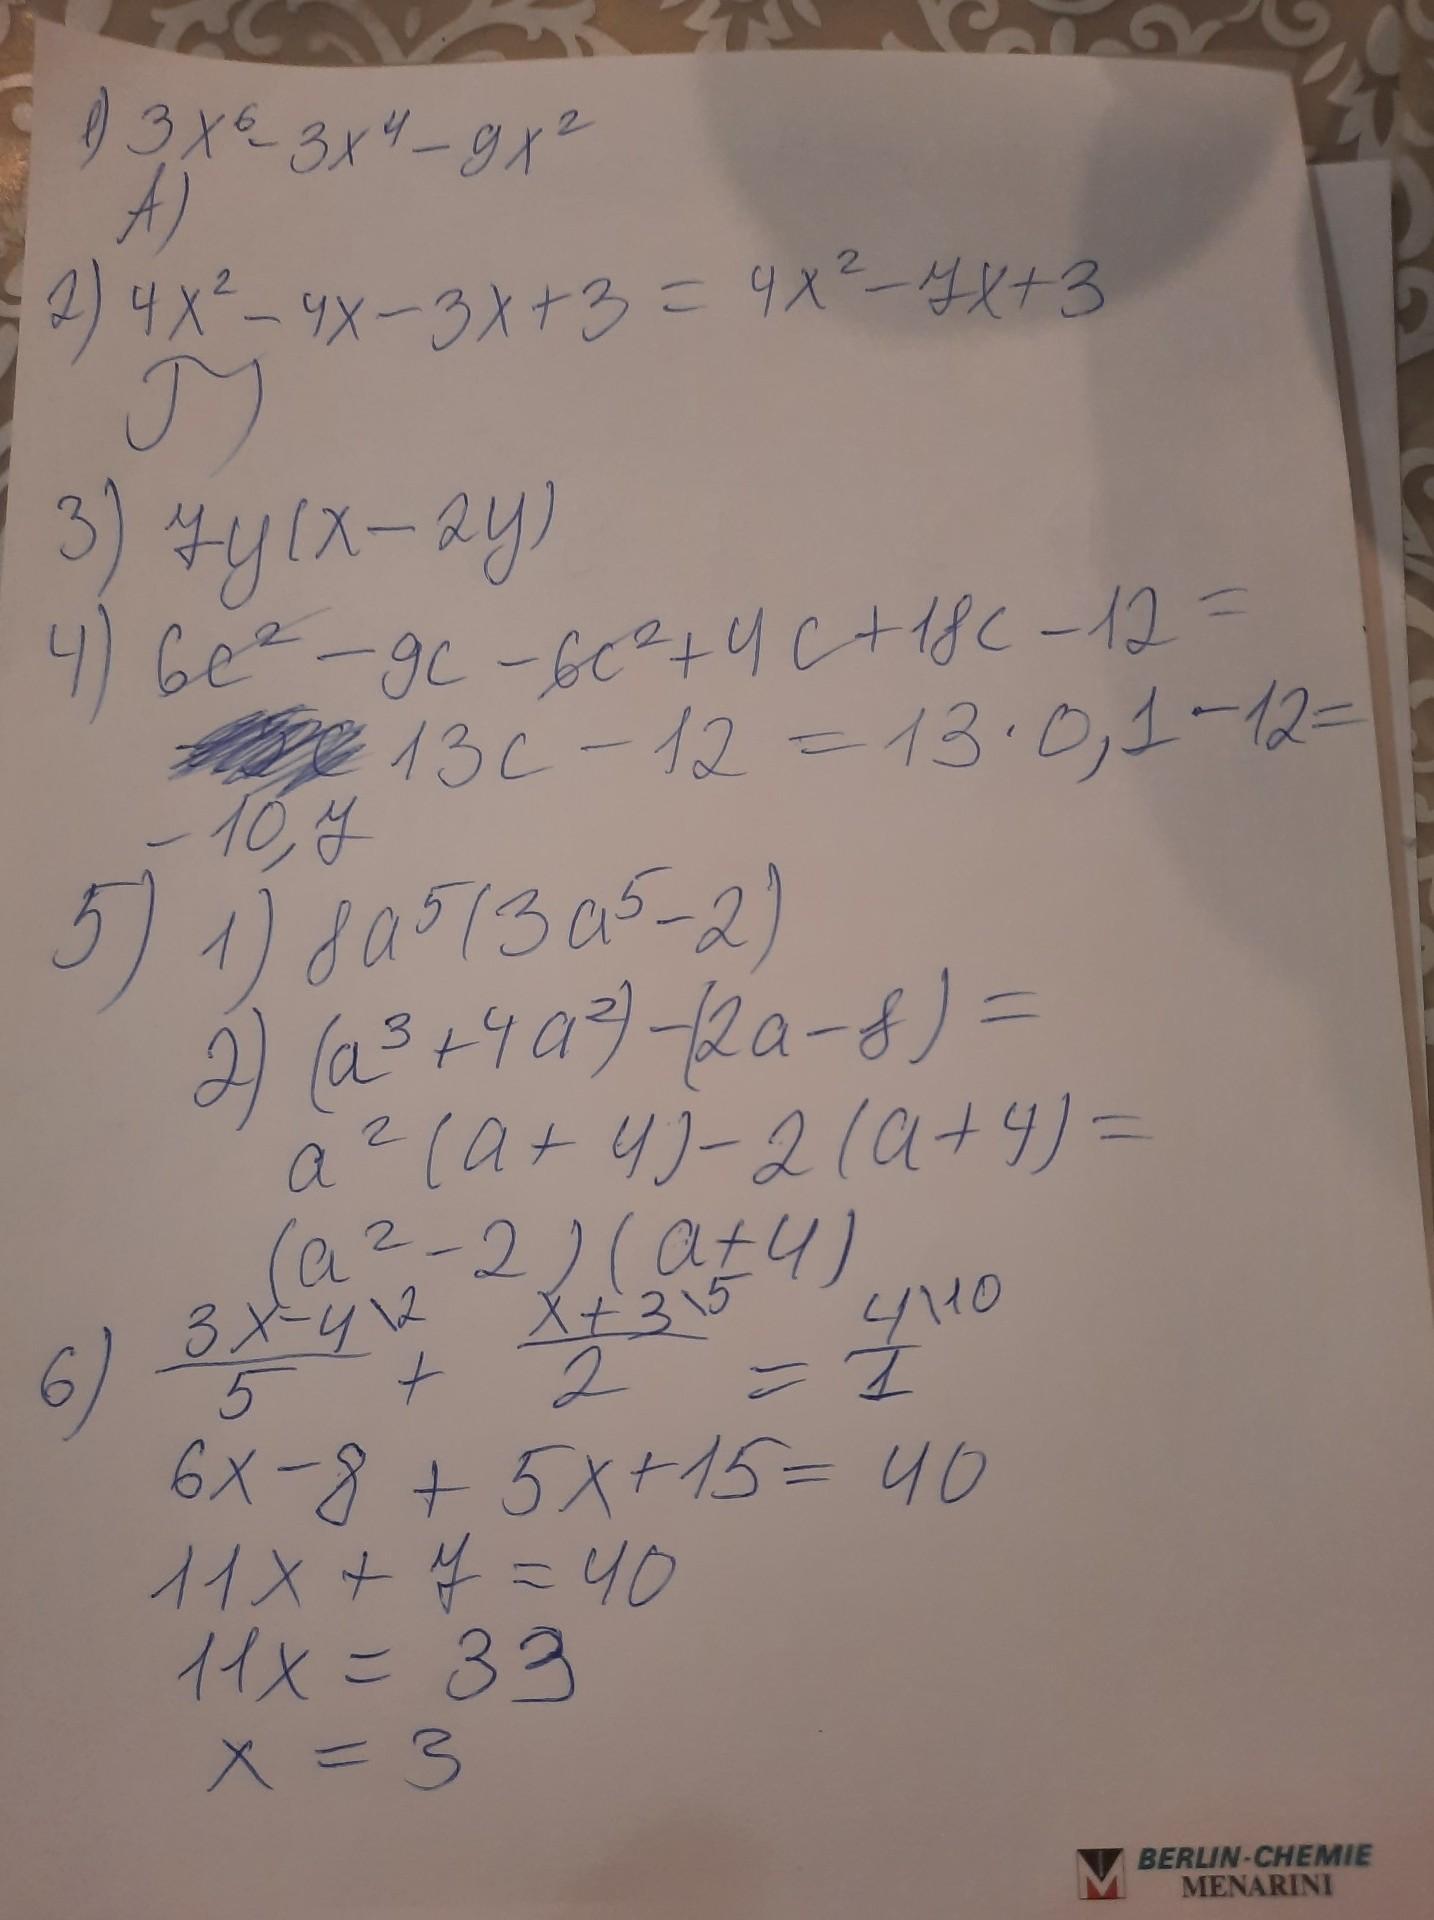 1) 3x⁶ - 3x⁴ - 9x²
А)
2) 4x² - 4x - 3x + 3 = 4x² - 7x + 3
Г)
3) 7y(x - 2y)
4) 6c² - 9c - 6c² + 4c + 18c - 12 =
13c - 12 = 13 · 0,1 - 12 =
- 10,7
5) 1) 8a⁵(3a⁵ - 2)
2) (a³ + 4a²) - (2a - 8) =
a²(a + 4) - 2(a + 4) =
(a² - 2)(a + 4)
6) 3x-4\2/5 + x+3\5/2 = 4\10/1
6x - 8 + 5x + 15 = 40
11x + 7 = 40
11x = 33
x = 3
BERLIN-CHEMIE
MENARINI